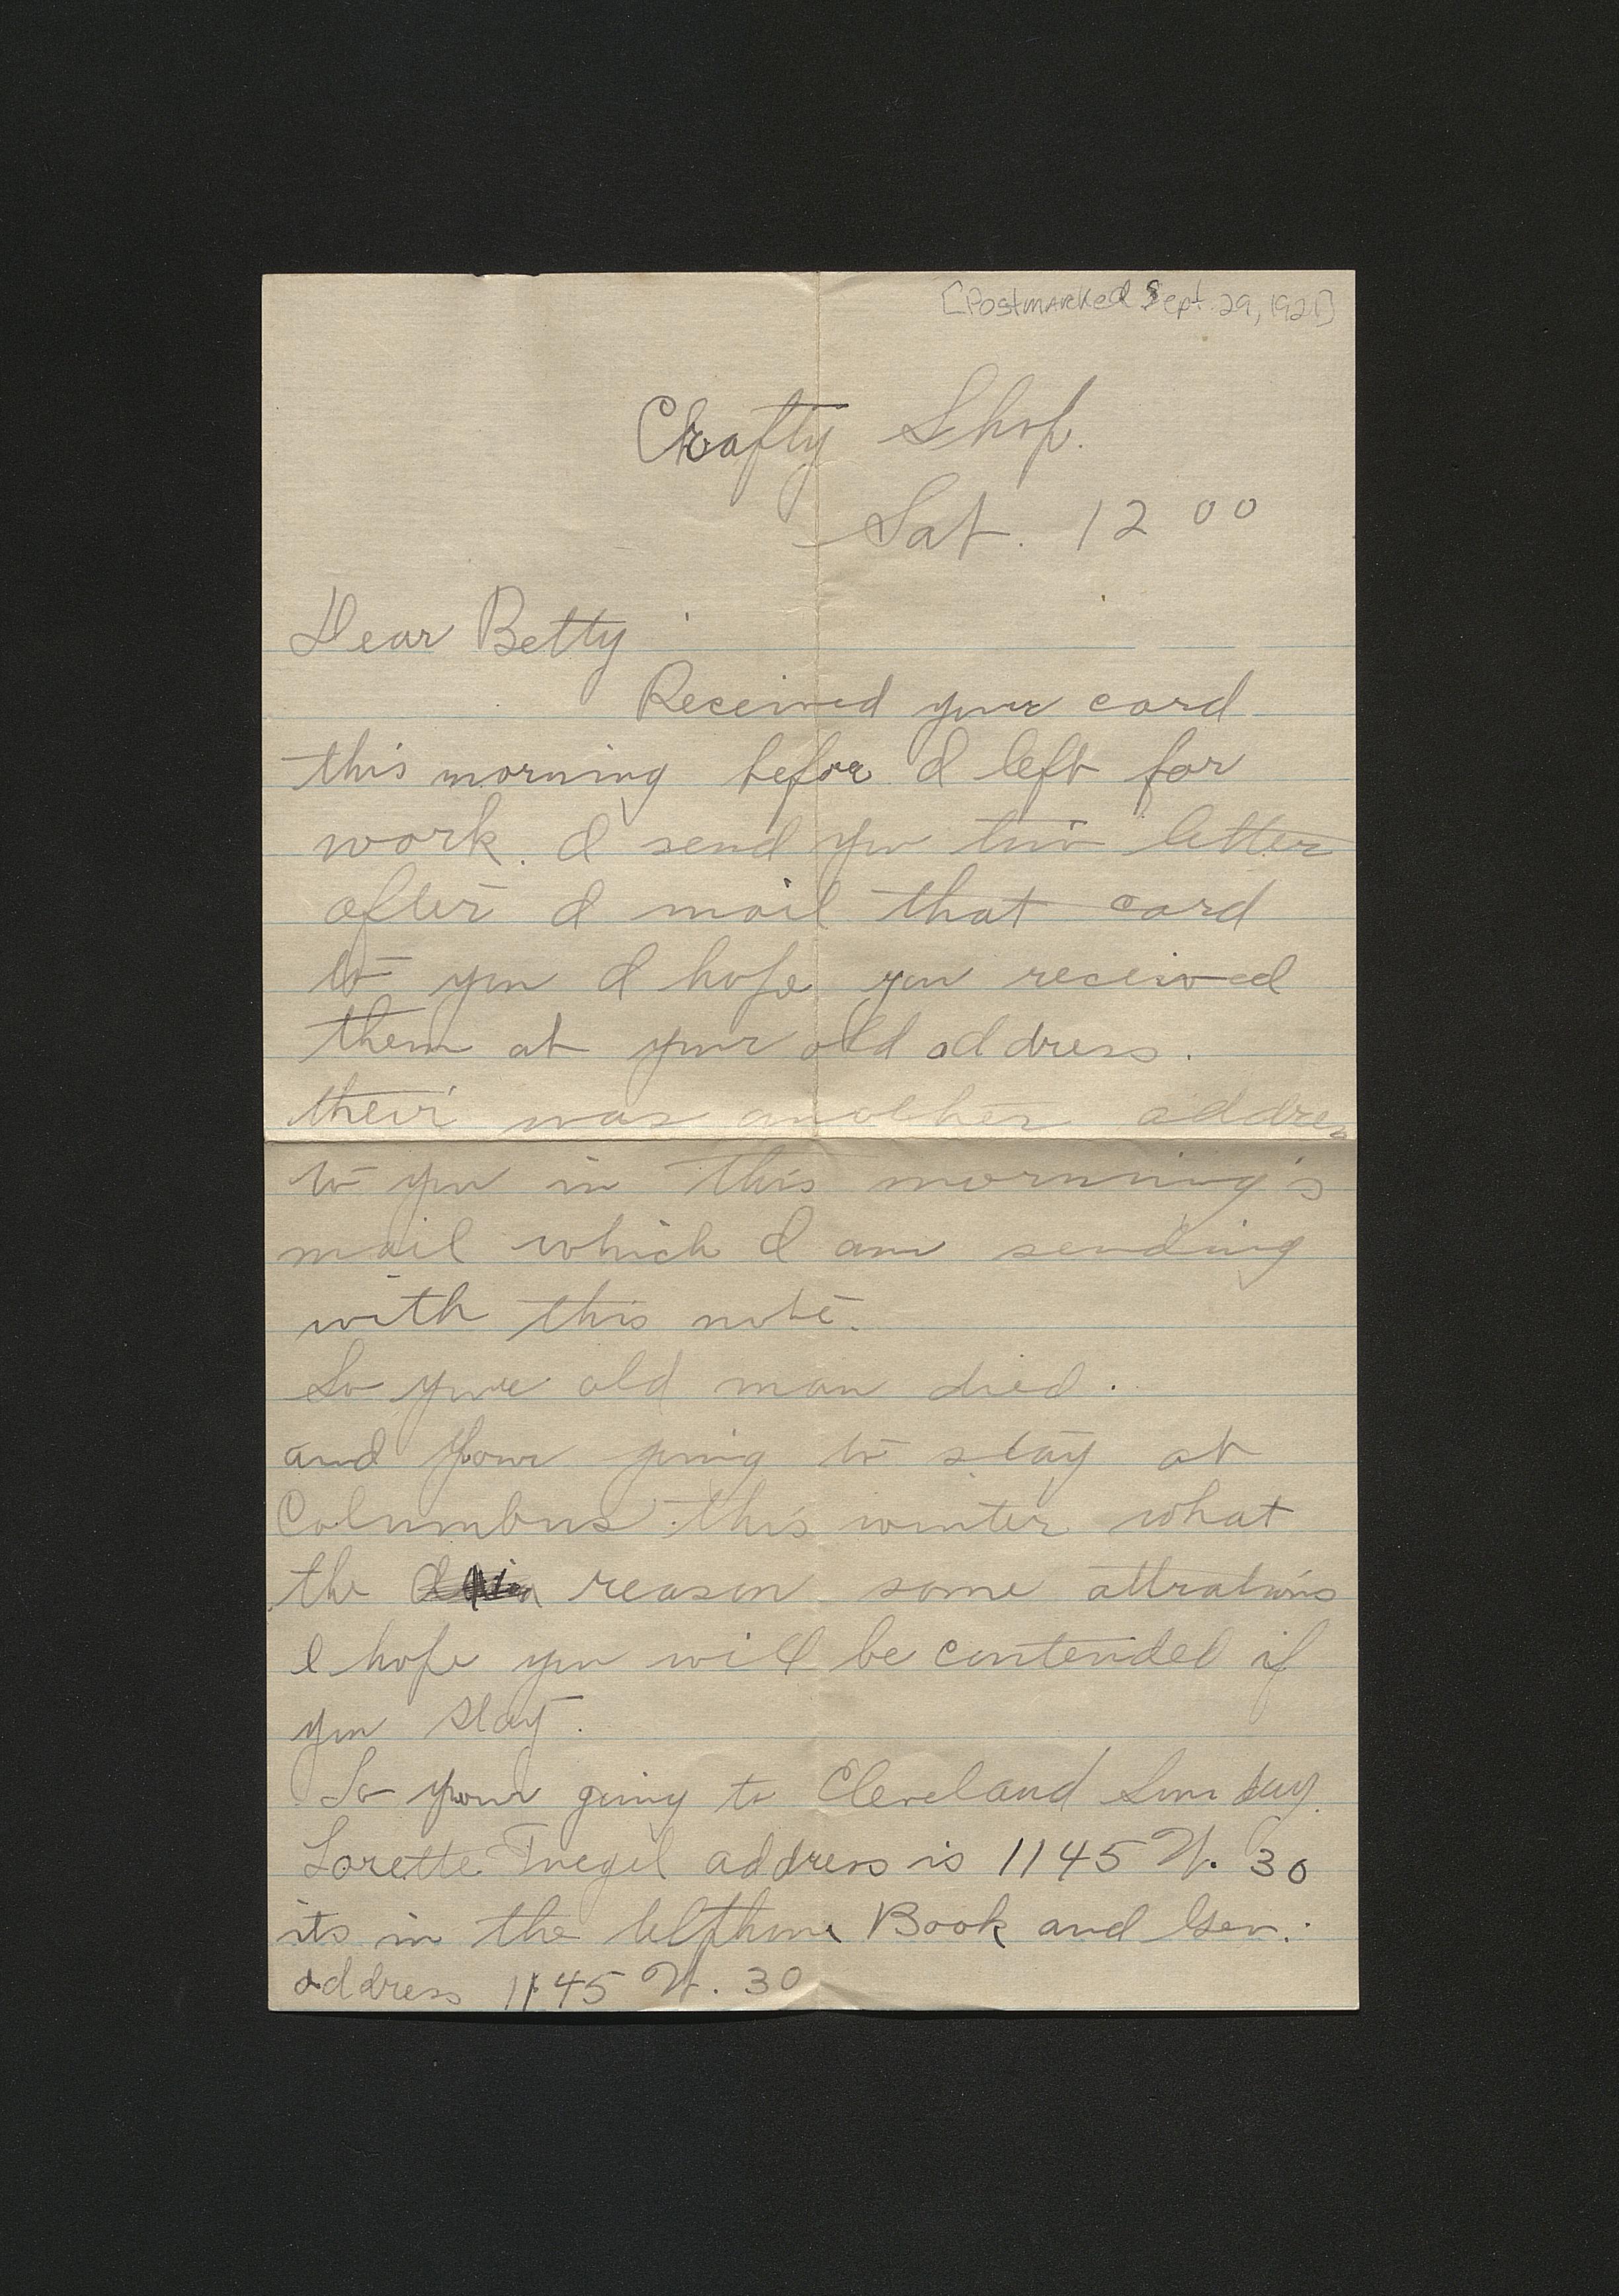 [Postmarked Sept. 29, 1921]
Crafty Shop.
Sat. 12 00
Dear Betty
Received your card
this morning before I left for
work. I send you two letter
after I mail that card
to you I hope you received
them at your old address.
their was another addres
to you in this morning's
mail which I am sending
with this note.
So your old man died.
and your going to stay at
Columbus this winter what
the reason some attrations
I hope you will be contended if
you stay.
So your going to Cleveland Sunday.
Lorette address is 1145 W. 30
its in the Book and Gen.
address 1145 W. 30